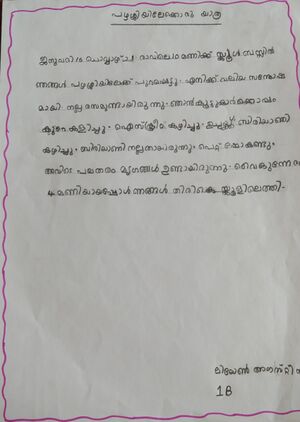 പഴശ്ശിയിലേക്കൊരു യാത്ര
രാവിലെ 10 മണിക്ക് സ്കൂൾ ബസ്സിൽ
ഞങ്ങൾ പഴശ്ശിയിലേക്ക് പുറപ്പെട്ടു. എനിക്ക് വലിയ സന്തോഷ
മായി. നല്ല രസമുണ്ടായിരുന്നു. ഞാൻ കൂട്ടുകാർക്കൊപ്പം
കുറേ കളിച്ചു. ഐസ്ക്രീം കഴിച്ചു. ഉച്ചയ്ക്ക് ബിരിയാണി
കഴിച്ചു. ബിരിയാണി നല്ലതായിരുന്നു. പെറ്റ് ഷോ കണ്ടു.
അവിടെ പലതരം മൃഗങ്ങൾ ഉണ്ടായിരുന്നു. വൈകുന്നേരം
4 മണിയായപ്പോൾ ഞങ്ങൾ തിരികെ സ്കൂളിലെത്തി.
1B